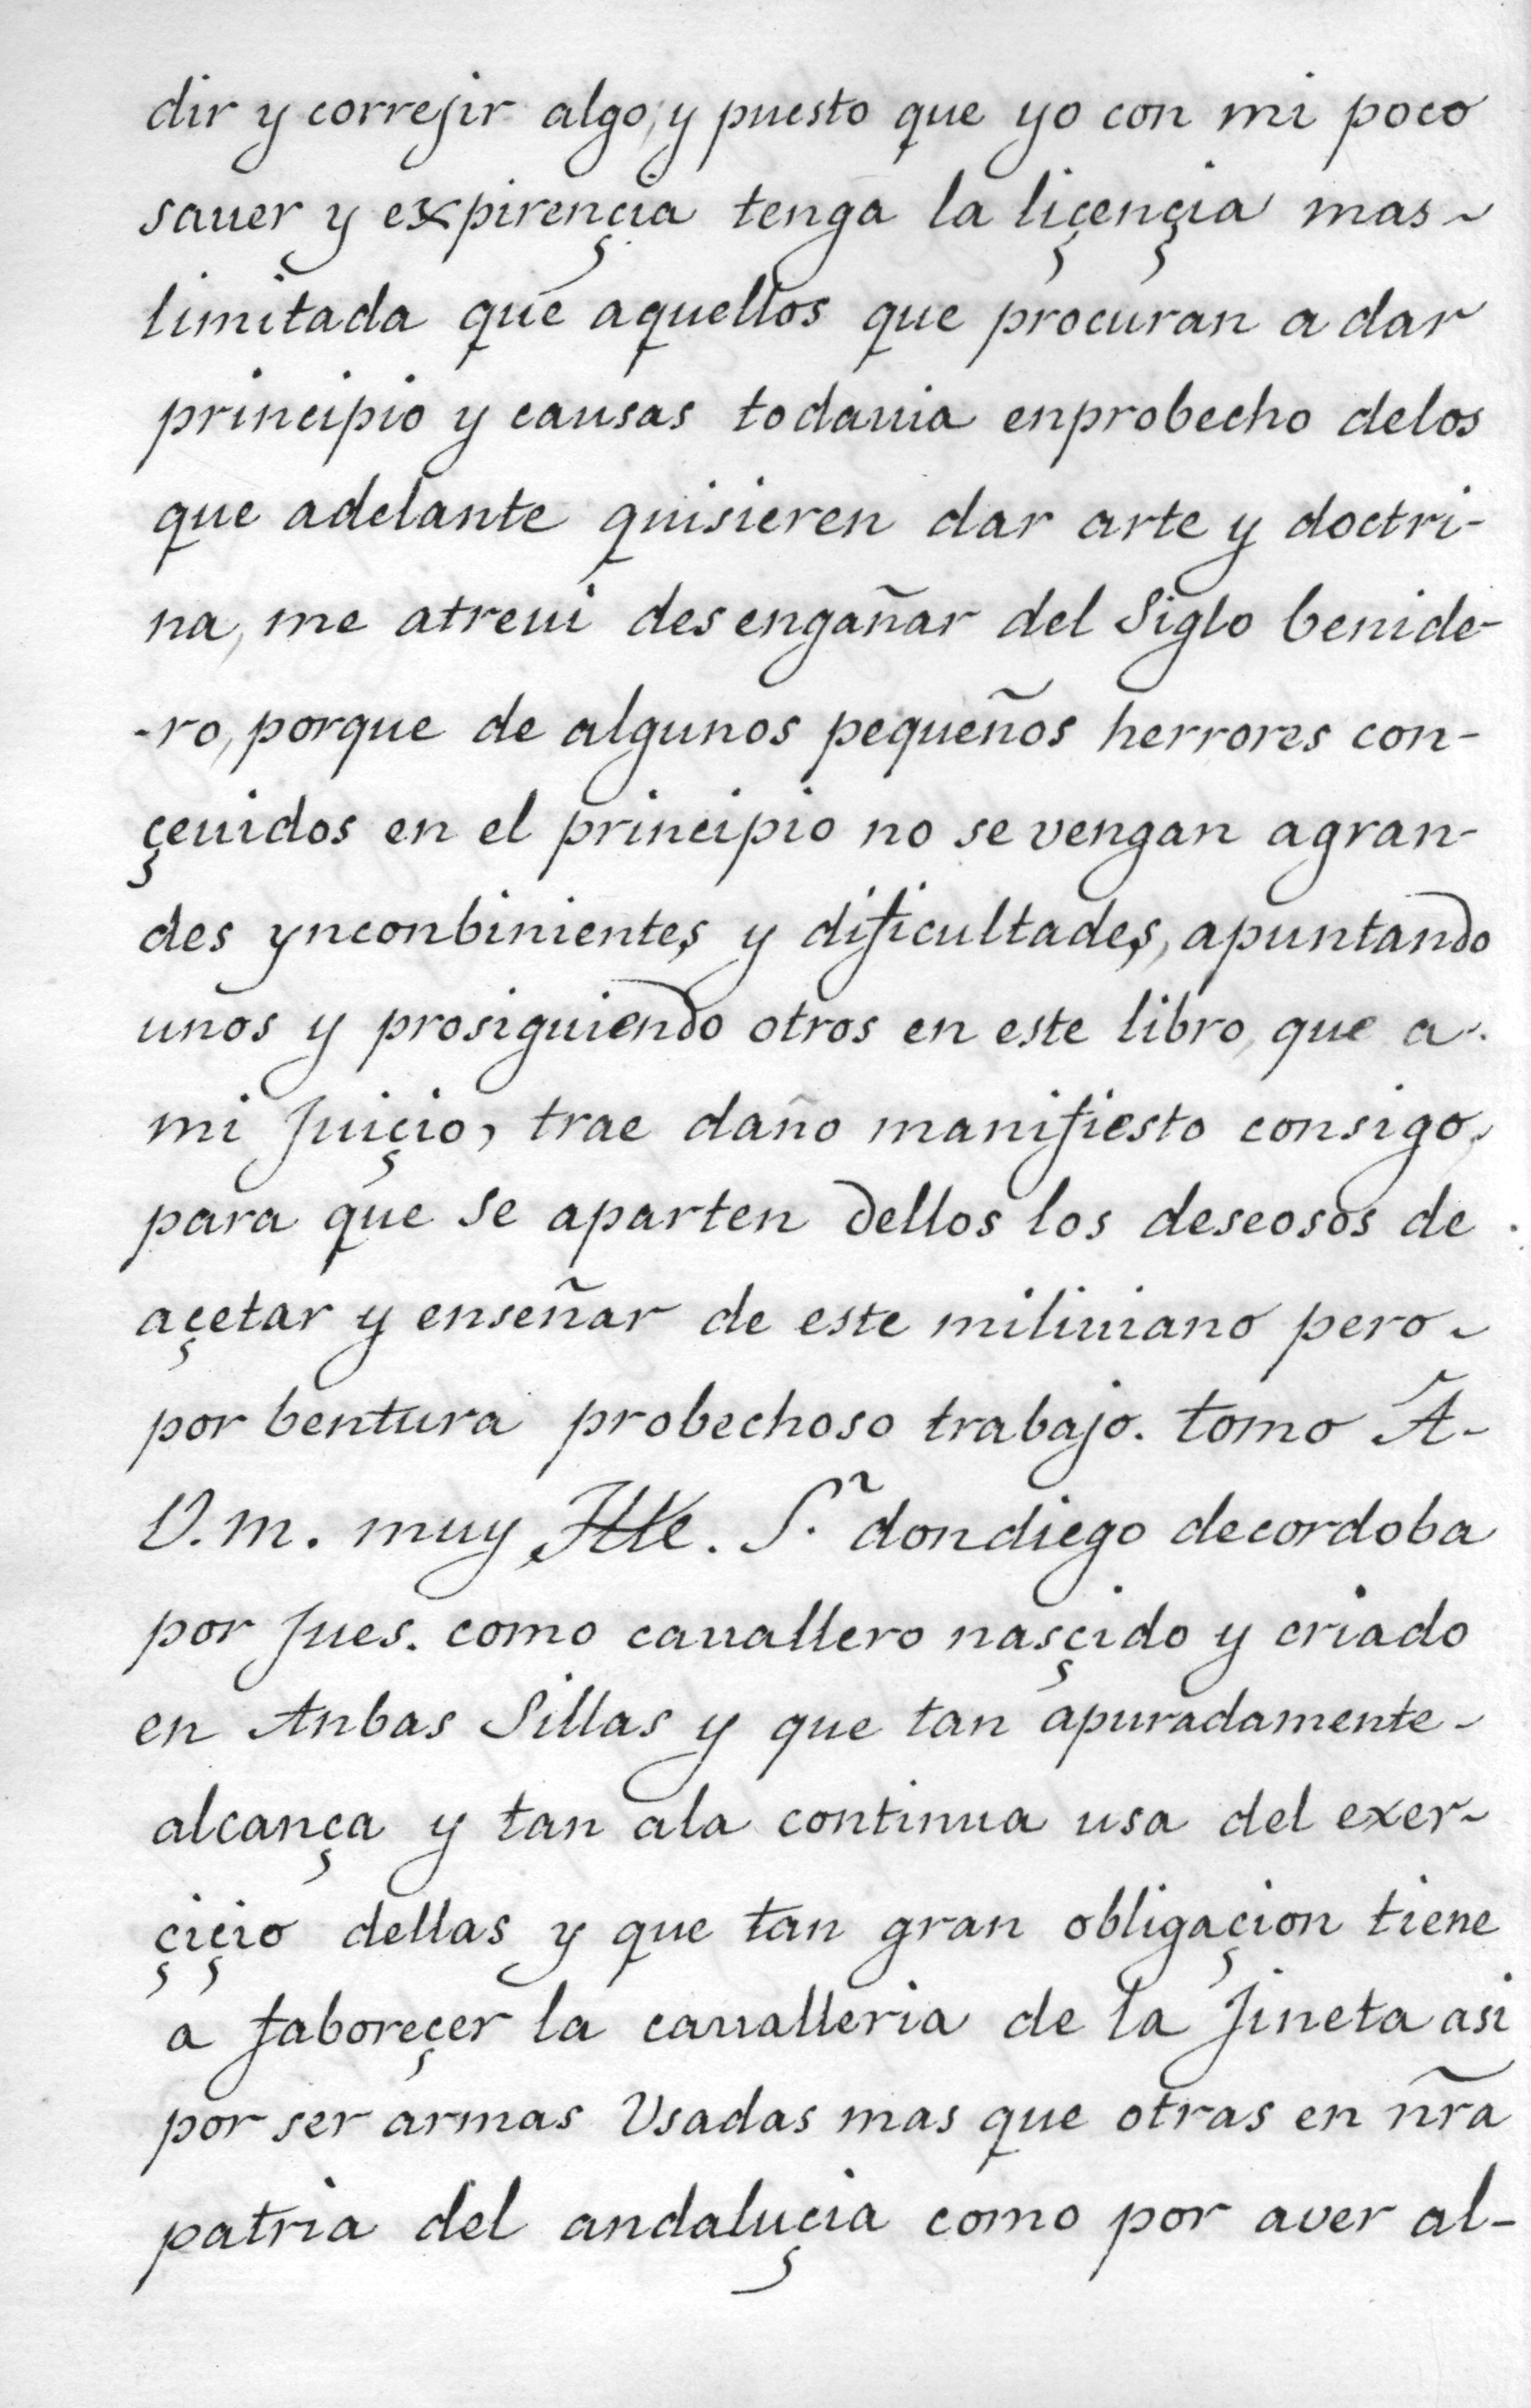 dir y correjir algo, y puesto que yo con mi poco
sauer y expirençia tenga la liçençia mas ~
limitada que aquellos que procuran a dar
principio y causas todauia enprobecho delos
que adelante quisieren dar arte y doctri-
na, me atreui desengañar del Siglo benide-
-ro, porque de algunos pequeños herrores con-
çeuidos en el principio no se vengan agran-
des ynconbinientes y dificultades, apuntando
unos y prosiguiendo otros en este libro, que a
mi Juiçio, trae daño manifiesto consigo,
para que se aparten dellos los deseosos de
açetar y enseñar de este miliuiano pero ~
por bentura probechoso trabajo. tomo A-
V.m. muy Ille. S.r dondiego decordoba
por Jues. como cauallero nasçido y criado
en Anbas Sillas y que tan apuradamente ~
alcança y tan ala continua usa del exer~
çiçio dellas y que tan gran obligaçion tiene
a faboreçer la caualleria de la Jineta asi
por ser armas Vsadas mas que otras en nr̃a
patria del andaluçia como por aver al-